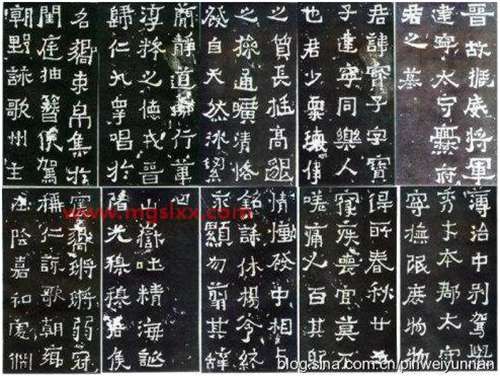 晉故振威將軍
建寧太守爨府
君之墓
君諱寶子字寶
子建寧同樂人
也君少稟瓌偉
之質長挺高邈
之操通曠清恪
發自天然冰絜
簡靜道兼行葦
淳粹之德戎晉
歸仁九皋唱於
名嚮束帛集於
閨庭抽簪俟駕
朝野詠歌州主
簿治中別駕舉
秀才本郡太守
寧撫氓庶物物
得所春秋廿五
寢疾喪官莫不
嗟痛人百其躬
情慟發中相與
銘誄休揚令終
永顯勿翦其辭
曰
山嶽吐精海誕
陟光穆穆君侯
震嚮鏘鏘弱冠
稱仁詠歌朝鄉
在陰嘉和處淵
www.mgslxx.com
blog.sina.com.cn/pinweiyunnan